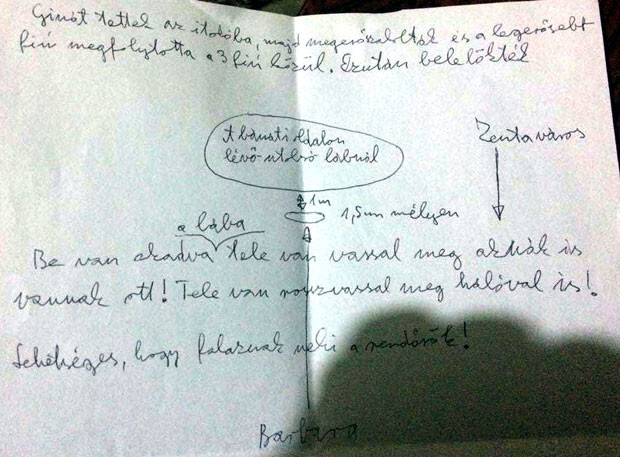 Ginát tettek az italába, majd megerőszakolták és a legerősebb
fiú megfolytotta a 3 fiú közül. Ezután belelökték
A bánáti oldalon
lévő utolsó lábnál
Zenta város
1m
1,5m mélyen
a lába
Be van akadva tele van vassal meg aknák is
vannak ott! Tele van rossz vassal meg hálóval is!
Lehetséges, hogy falaznak neki a rendőrök!
Barbara